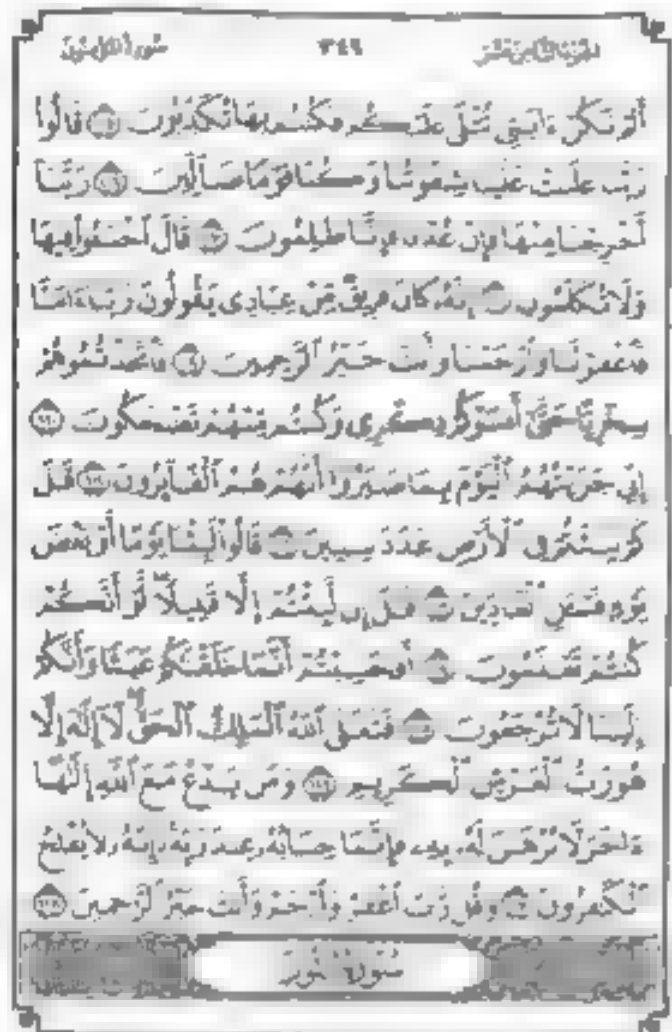 سورة المؤمنون ٣٤٩ الجزء الثامن عشر
أَلَمْ تَكُنْ ءَايَٰتِى تُتْلَىٰ عَلَيْكُمْ فَكُنتُم بِهَا تُكَذِّبُونَ ١٠٥ قَالُوا۟
رَبَّنَا غَلَبَتْ عَلَيْنَا شِقْوَتُنَا وَكُنَّا قَوْمًا ضَآلِّينَ ١٠٦ رَبَّنَآ
أَخْرِجْنَا مِنْهَا فَإِنْ عُدْنَا فَإِنَّا ظَٰلِمُونَ ١٠٧ قَالَ ٱخْسَـُٔوا۟ فِيهَا
وَلَا تُكَلِّمُونِ ١٠٨ إِنَّهُۥ كَانَ فَرِيقٌ مِّنْ عِبَادِى يَقُولُونَ رَبَّنَآ ءَامَنَّا
فَٱغْفِرْ لَنَا وَٱرْحَمْنَا وَأَنتَ خَيْرُ ٱلرَّٰحِمِينَ ١٠٩ فَٱتَّخَذْتُمُوهُمْ
سِخْرِيًّا حَتَّىٰٓ أَنسَوْكُمْ ذِكْرِى وَكُنتُم مِّنْهُمْ تَضْحَكُونَ ١١٠
إِنِّى جَزَيْتُهُمُ ٱلْيَوْمَ بِمَا صَبَرُوٓا۟ أَنَّهُمْ هُمُ ٱلْفَآئِزُونَ ١١١ قَٰلَ
كَمْ لَبِثْتُمْ فِى ٱلْأَرْضِ عَدَدَ سِنِينَ ١١٢ قَالُوا۟ لَبِثْنَا يَوْمًا أَوْ بَعْضَ
يَوْمٍ فَسْـَٔلِ ٱلْعَآدِّينَ ١١٣ قَٰلَ إِن لَّبِثْتُمْ إِلَّا قَلِيلًا لَّوْ أَنَّكُمْ
كُنتُمْ تَعْلَمُونَ ١١٤ أَفَحَسِبْتُمْ أَنَّمَا خَلَقْنَٰكُمْ عَبَثًا وَأَنَّكُمْ
إِلَيْنَا لَا تُرْجَعُونَ ١١٥ فَتَعَٰلَى ٱللَّهُ ٱلْمَلِكُ ٱلْحَقُّ لَآ إِلَٰهَ إِلَّا
هُوَ رَبُّ ٱلْعَرْشِ ٱلْكَرِيمِ ١١٦ وَمَن يَدْعُ مَعَ ٱللَّهِ إِلَٰهًا
ءَاخَرَ لَا بُرْهَٰنَ لَهُۥ بِهِۦ فَإِنَّمَا حِسَابُهُۥ عِندَ رَبِّهِۦٓ إِنَّهُۥ لَا يُفْلِحُ
ٱلْكَٰفِرُونَ ١١٧ وَقُل رَّبِّ ٱغْفِرْ وَٱرْحَمْ وَأَنتَ خَيْرُ ٱلرَّٰحِمِينَ ١١٨
سُورَةُ النُّورِ